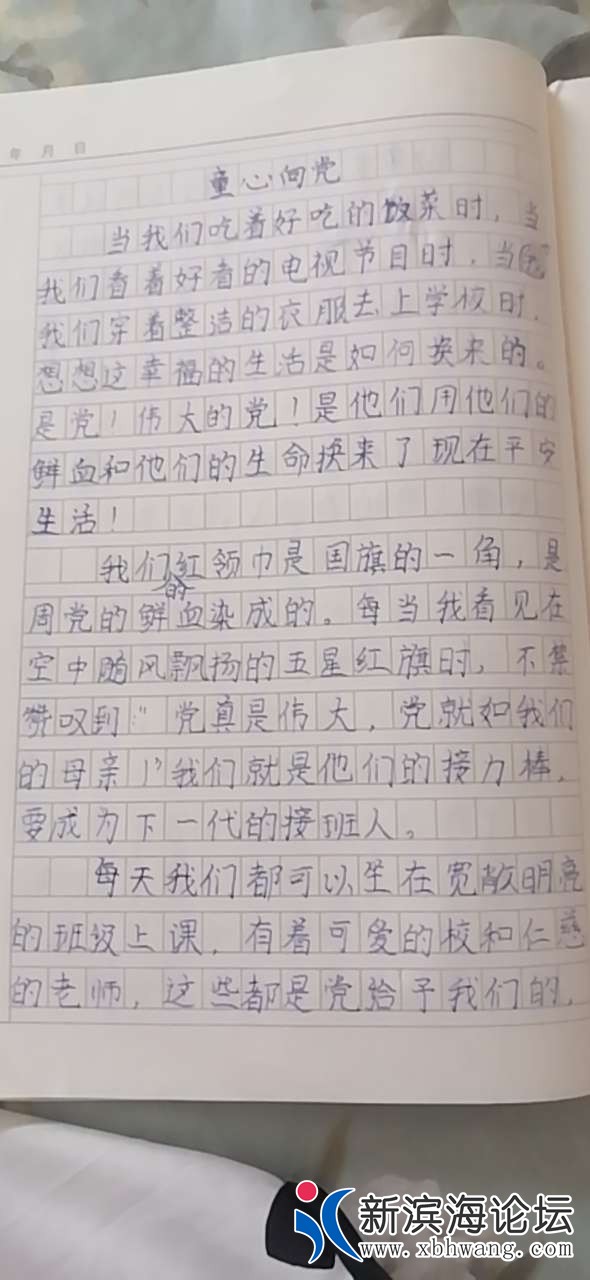 年 月 日
童心向党
当我们吃着好吃的饭菜时，当
我们看着好看的电视节目时，当
我们穿着整洁的衣服去上学校时，
想想这幸福的生活是如何换来的。
是党！伟大的党！是他们用他们的
鲜血和他们的生命换来了现在平安
生活！
我们的红领巾是国旗的一角，是
周党的鲜血染成的。每当我看见在
空中随风飘扬的五星红旗时，不禁
赞叹到：“党真是伟大，党就如我们
的母亲！”我们就是他们的接力棒，
要成为下一代的接班人。
每天我们都可以坐在宽敞明亮
的班级上课，有着可爱的校和仁慈
的老师，这些都是党给予我们的，
新滨海论坛
www.xbhwang.com